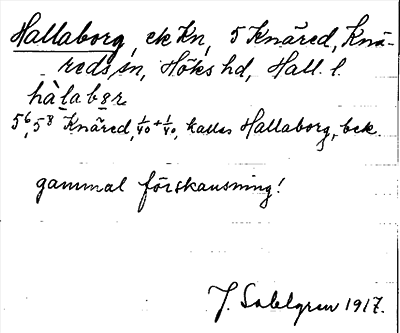 Hallaborg, ek Kn, 5 Knäred, Knä-
reds sn, Höks hd, Hall. l.
hàlabər
5⁶, 5⁸ Knäred, 1/40 + 1/40, kallas Hallaborg, bek.
gammal förskansning!
J. Sahlgren 1917.